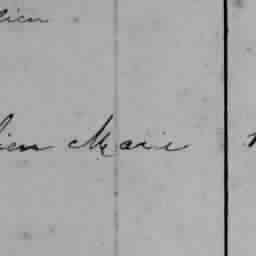 lien
lien Marie